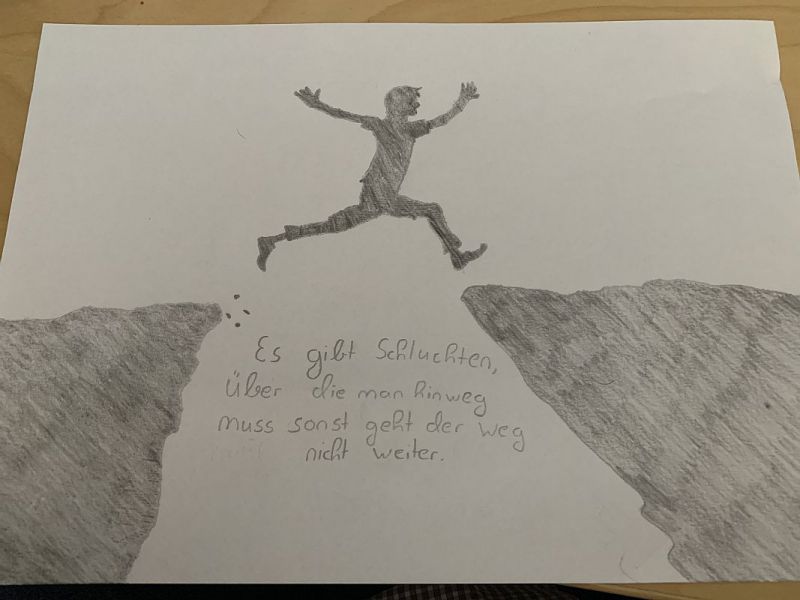 Es gibt Schluchten,
über die man hinweg
muss sonst geht der weg
nicht weiter.